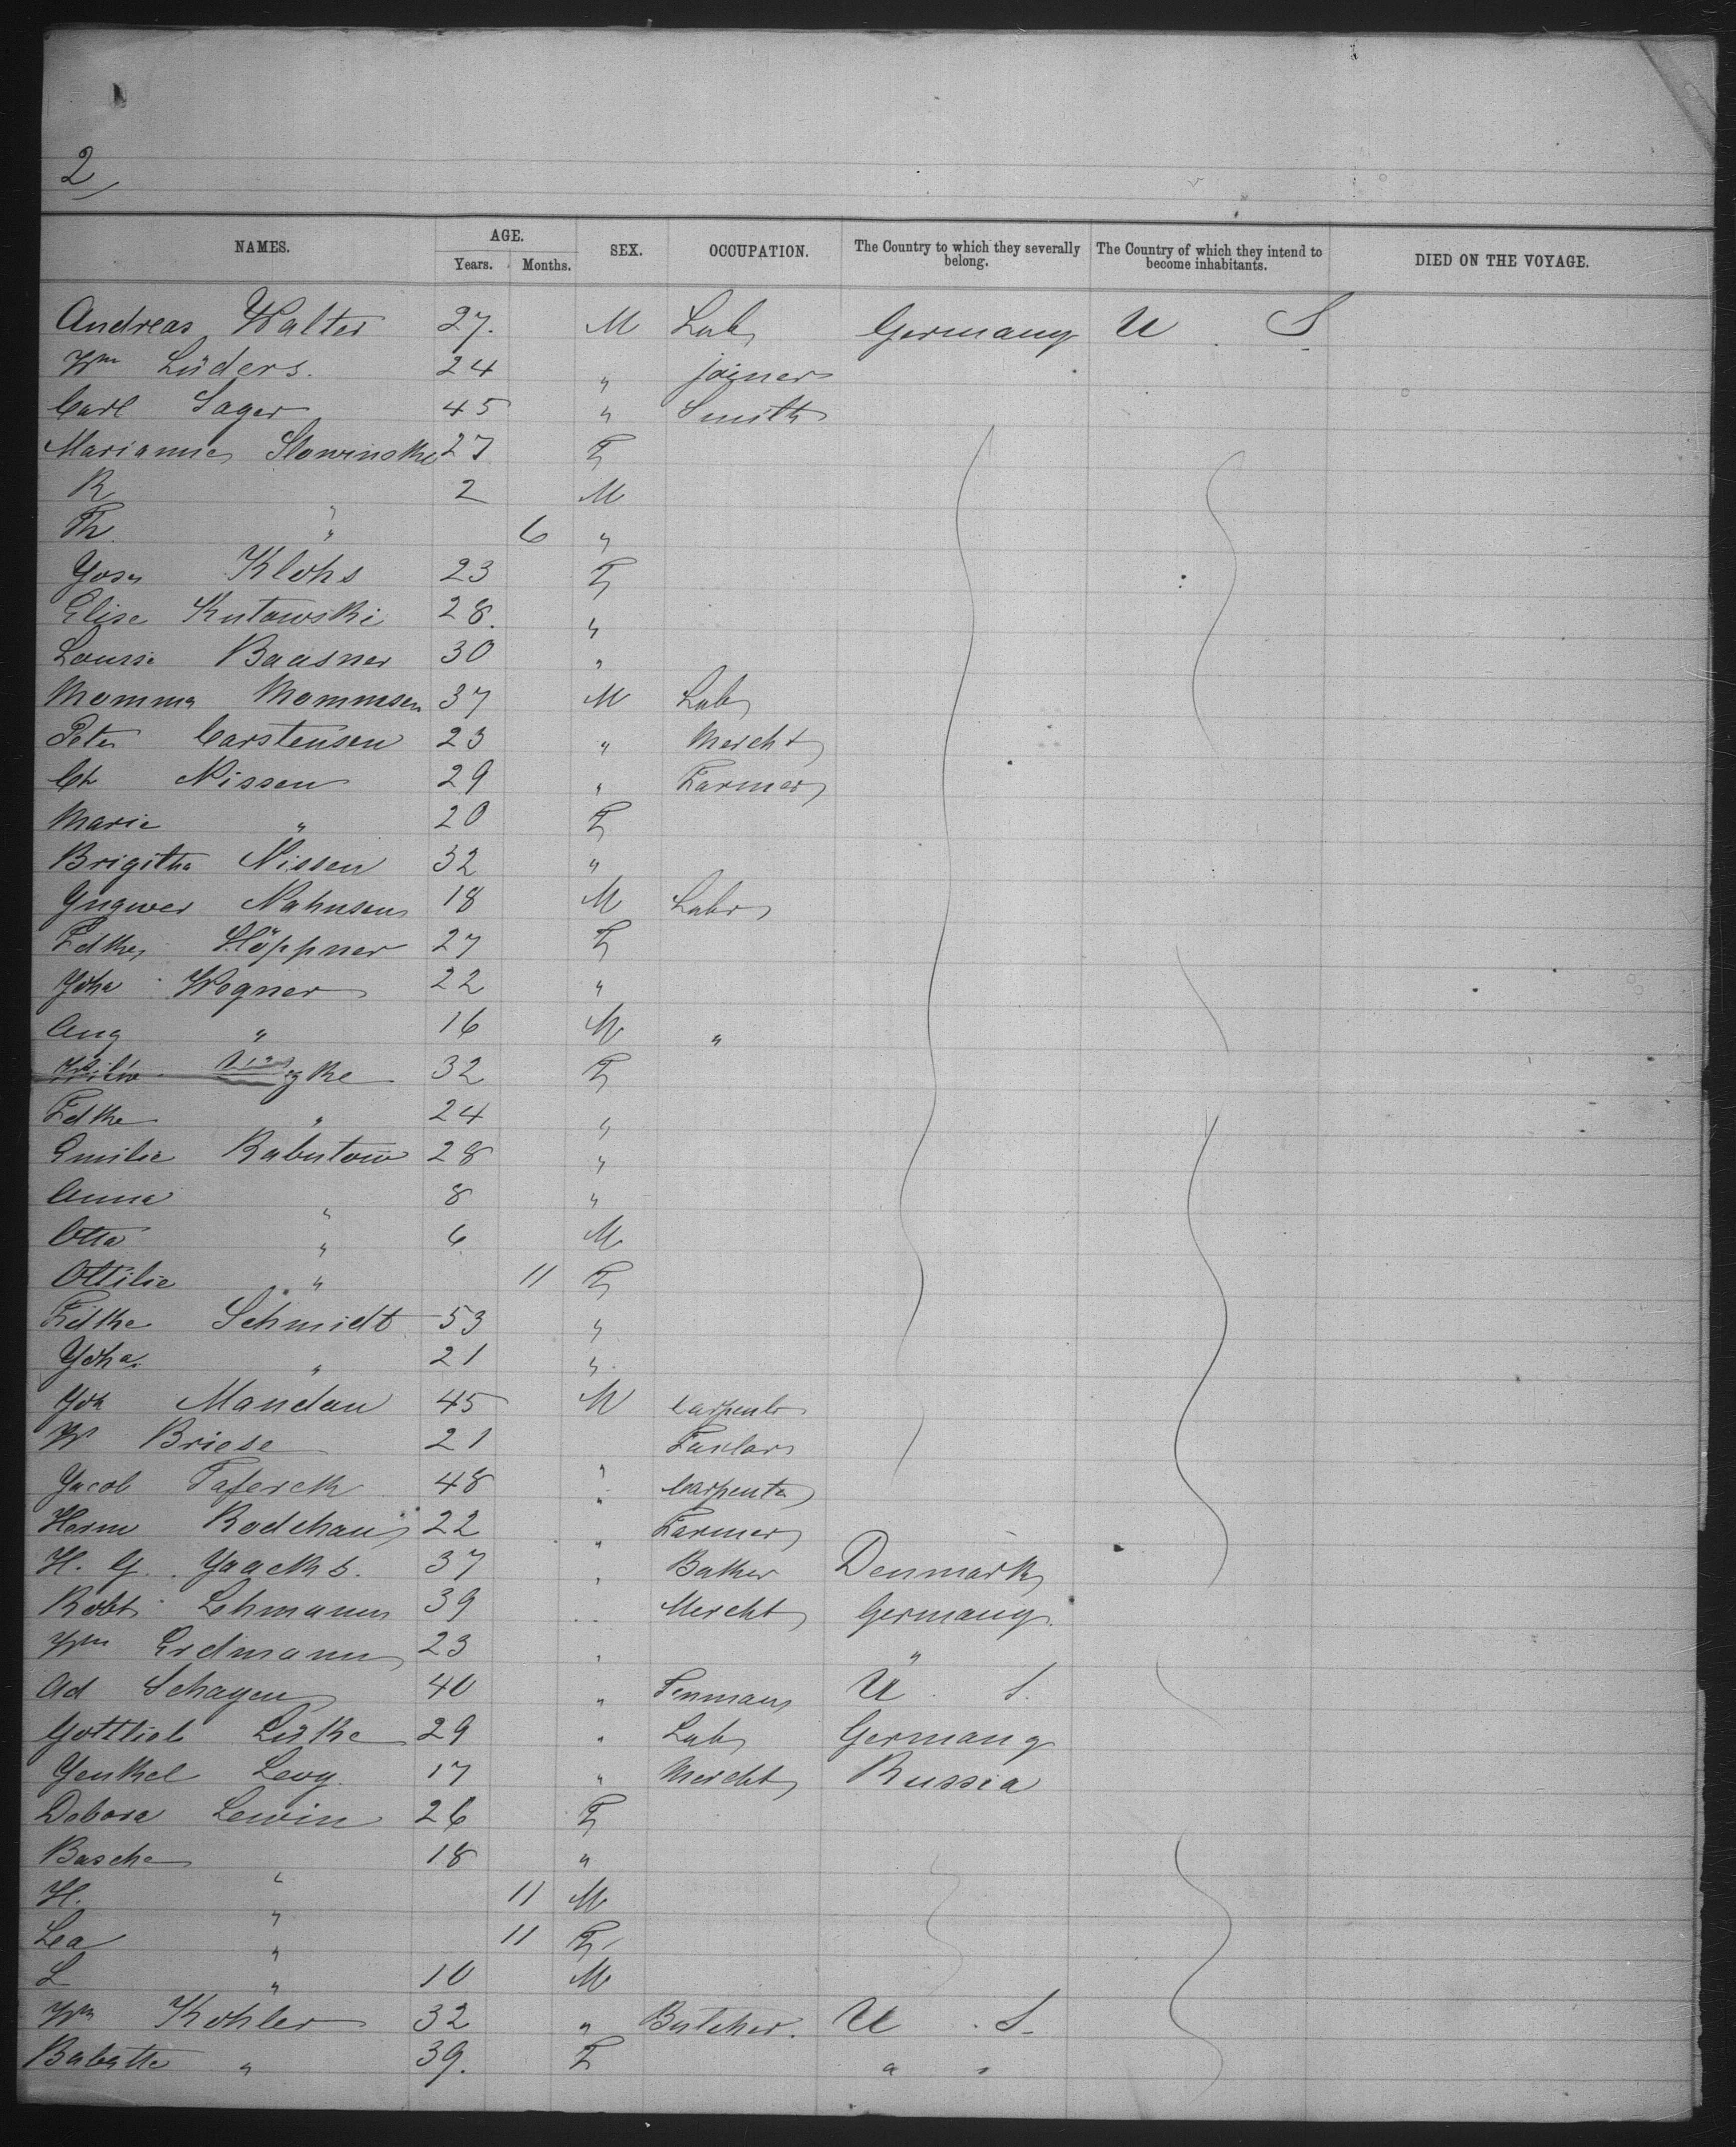 2
NAMES. AGE. Years. Months. SEX. OCCUPATION. The Country to which they severally belong. The Country of which they intend to become inhabitants. DIED ON THE VOYAGE.
Andreas Walter 27. M Lab Germany U S
Wm Lüders. 24 " joiner
Carl Sager 45 " Smith
Marianne Slowinske 27 F
R " 2 M
Th. " 6 "
Klohs 23 F
Elise Kutowski 28. "
Louise Baasner 30 "
Momme Mommsen 37 M Lab
Peter Carstensen 23 " Mercht
Ch Nissen 29 " Farmer
Marie " 20 F
Brigitha Nissen 32 "
Yngwer Nahnsen 18 M Labr
Fdke Höppner 27 F
Joha Wegner 22 "
Aug " 16 M "
32 F
Fdke " 24 "
Emilie Rabutow 28 "
Anna " 8 "
Otto " 6 M
Ottilie " 11 F
Fdke Schmidt 53 "
Joha. " 21 "
Joh Mandau 45 M Carpenter
W Briese 21 "
Jacob Taferck 48 " Carpenter
Herm 22 " Farmer
H. J. Jaacks. 37 " Baker Denmark
Robt Lehmann 39 " Mercht Germany
Wm Erdmann 23 " "
Ad Schagen 40 " U. S.
Gottlieb Lüke 29 " Lab Germany
Jenkel Levy 17 " Mercht Russia
Debora Lewin 26 F
Basche " 18 "
H. " 11 M
Lea " 11 F
L " 10 M
Wm Kohler 32 " Butcher. U. S.
Babette " 39. F " "